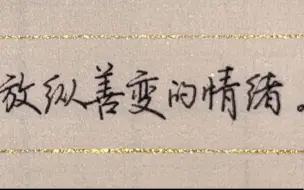 放纵善变的情绪。